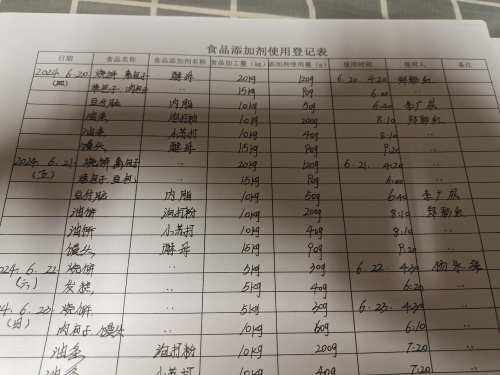 食品添加剂使用登记表
日期 食品名称 食品添加剂名称 食品加工量(kg) 添加剂使用量(g) 使用时间 使用人 备注
2024.6.20 烧饼 酵母 20kg 120g 6.20. 4:20
(四) 肉包子 〃 15kg 90g 6:00 〃
豆付脑 内脂 10kg 50g 6:40
油条 泡打粉 10kg 200g 8:10
油条 小苏打 10kg 40g 8:10 〃
馒头 酵母 15kg 90g 9:20 〃
2024.6.21 烧饼 〃 20kg 120g 6.21. 4:20 〃
(五) 豆包 〃 15kg 90g 6:00 〃
豆付脑 内脂 10kg 50g 6:40
油饼 泡打粉 10kg 200g 8:10
油饼 小苏打 10kg 40g 8:10 〃
馒头 酵母 15kg 90g 9:20 〃
024.6.22 烧饼 〃 5kg 30g 6.22. 4:30
(六) 〃 5kg 40g 6:20 〃
24.6.23 烧饼 〃 5kg 30g 6.23. 4:30 〃
(日) 肉包子 馒头 〃 10kg 60g 6:10 〃
油条 泡打粉 10kg 200g 7:20 〃
油条 小苏打 10kg 40g 7:20